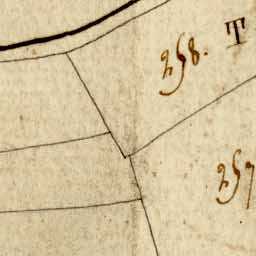 258. T
257